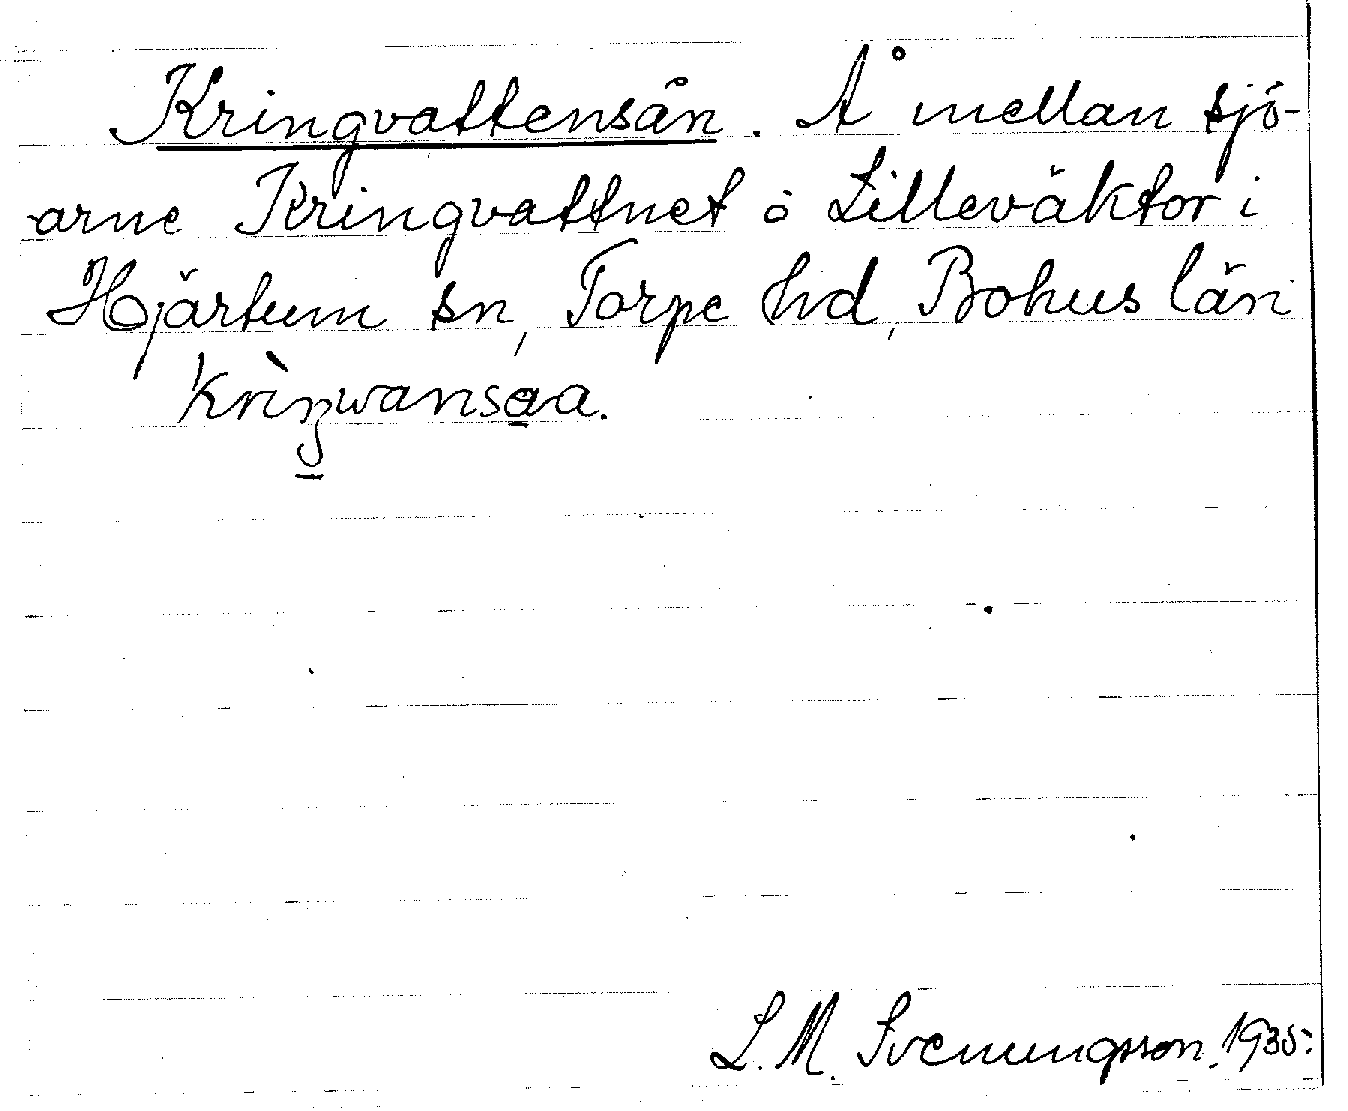 Kringvattensån. Å mellan sjö-
arne Kringvattnet o Lilleväktor i
Hjärtum sn, Torpe hd, Bohus län
krìŋwansaa.
L. M. Svenungsson. 1935.